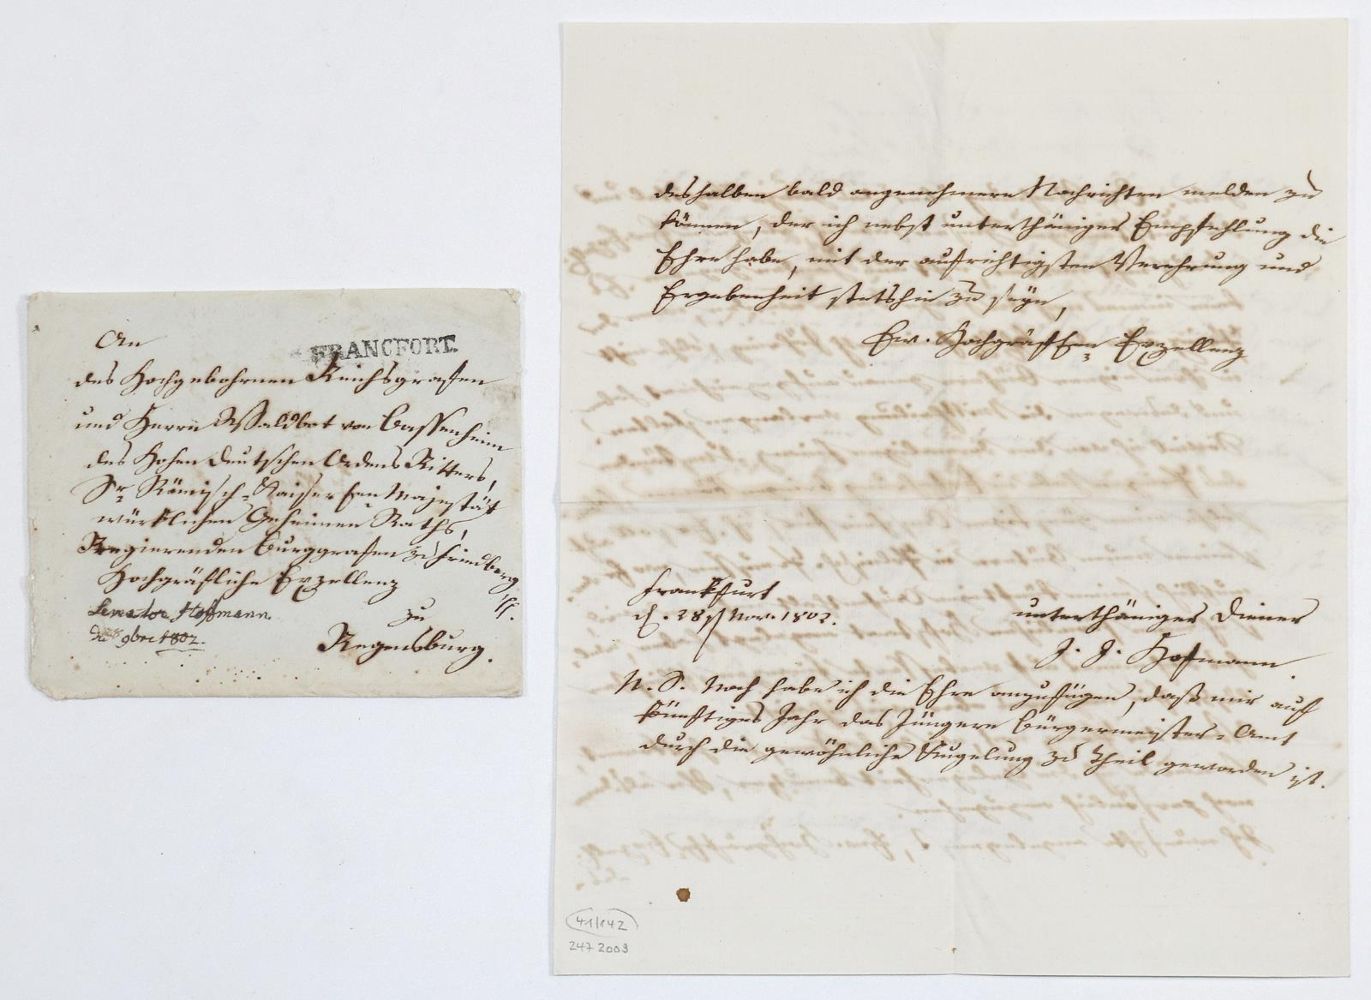 An
FRANCFORT.
des Hochgebohrnen Reichsgrafen
und Herrn Waldbot von Bassenheim
des Hohen Deutschen Ordens Ritters,
Sr Römisch-Kaiserlen Majestät
würklichen Geheimen Raths,
Regierenden Burggrafen zu Friedberg
Hochgräfliche Exzellenz
Senator Hoffmann
9bre 1802.
zu
Regensburg.
deshalben bald angenehmere Nachrichten melden zu
können, der ich nebst unterthäniger Empfehlung die
Ehre habe, mit der aufrichtigsten Verehrung und
Ergebenheit stetshin zu seyn,
Ew. Hochgräflen Exzellenz
Frankfurt
d. 28st Nov. 1802.
unterthäniger Diener
J. J. Hofmann.
N. S. Noch habe ich die Ehre anzufügen, daß mir auf
künftiges Jahr das Jüngere Bürgermeister-Amt
durch die gewöhnliche Kugelung zu Theil geworden ist.
41/142
247 2009